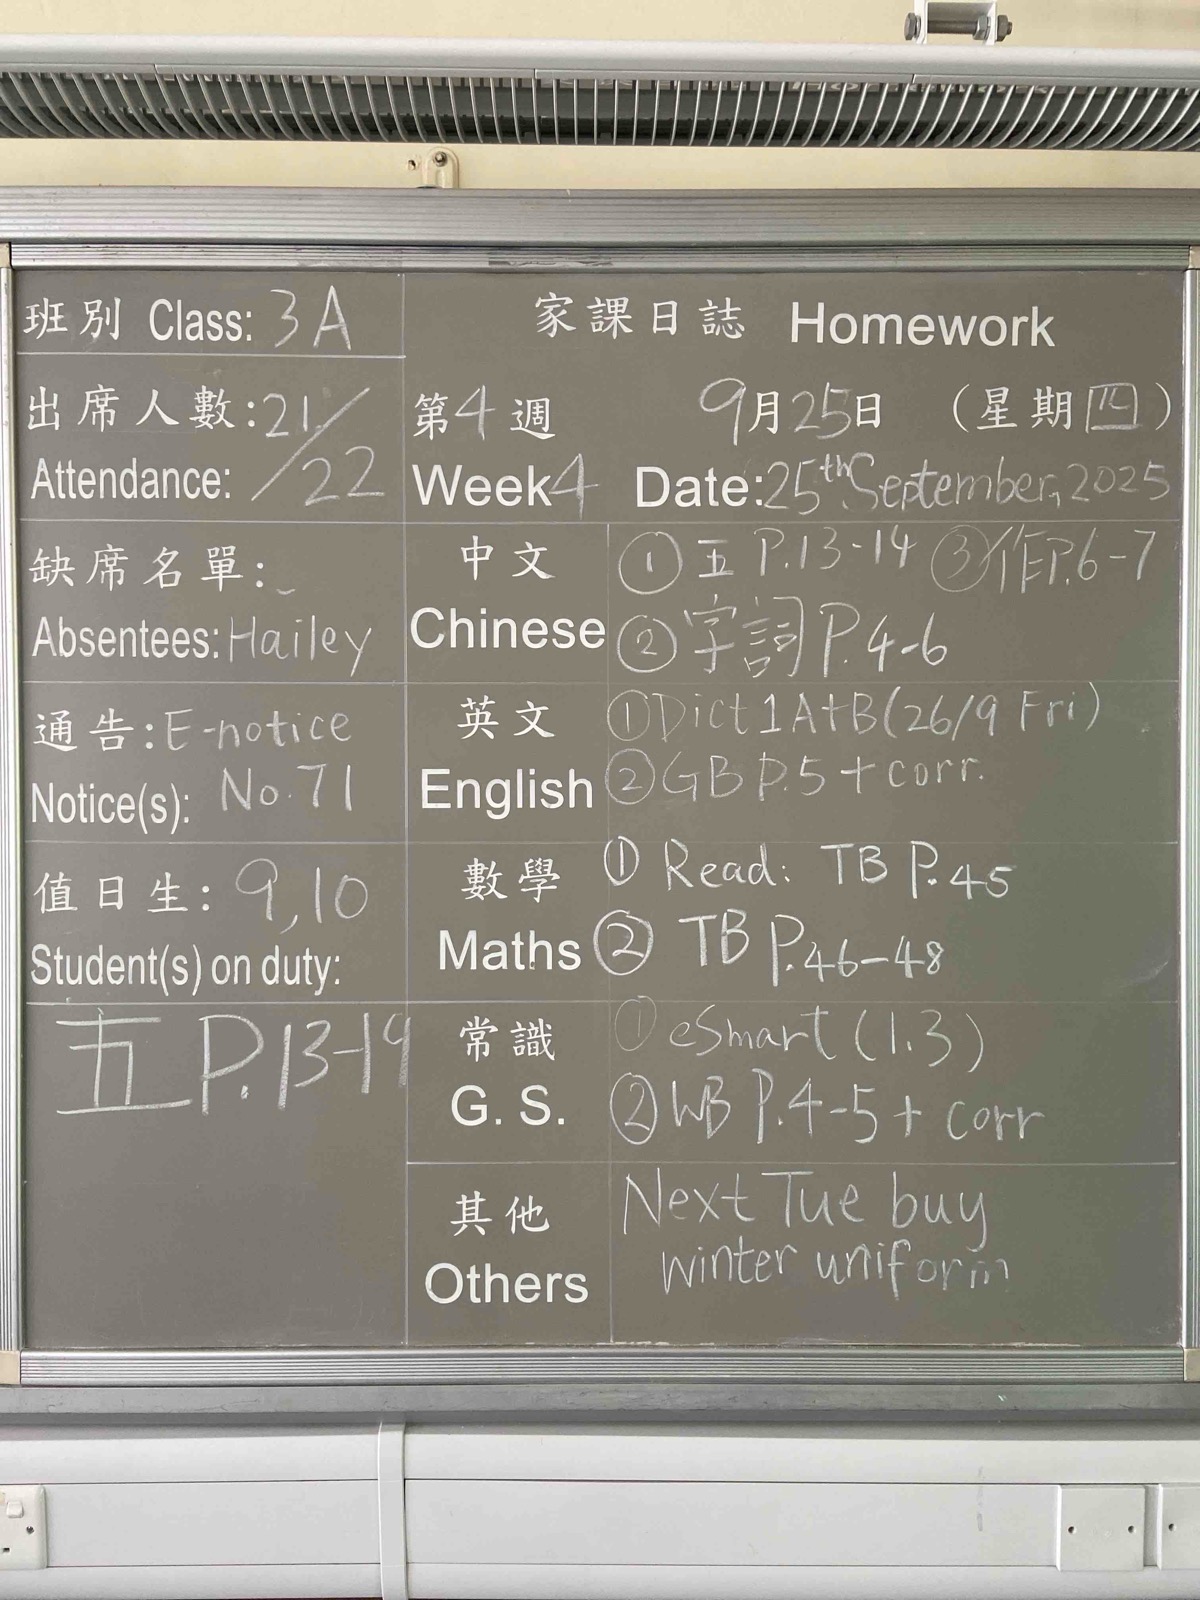 班別 Class: 3A
家課日誌 Homework
出席人數: 21/22
Attendance:
第4週 9月25日 (星期四)
Week 4 Date: 25th September, 2025
缺席名單:
Absentees: Hailey
中文 Chinese
① 五 P.13-14 ③ 作P.6-7
② 字詞 P.4-6
通告: E-notice
Notice(s): No.71
英文 English
① Dict 1 A+B (26/9 Fri)
② GB P.5 + corr.
值日生: 9,10
Student(s) on duty:
數學 Maths
① Read: TB P.45
② TB P.46-48
五 P.13-14
常識 G. S.
① eSmart (1.3)
② WB P.4-5 + corr
其他 Others
Next Tue buy
winter uniform